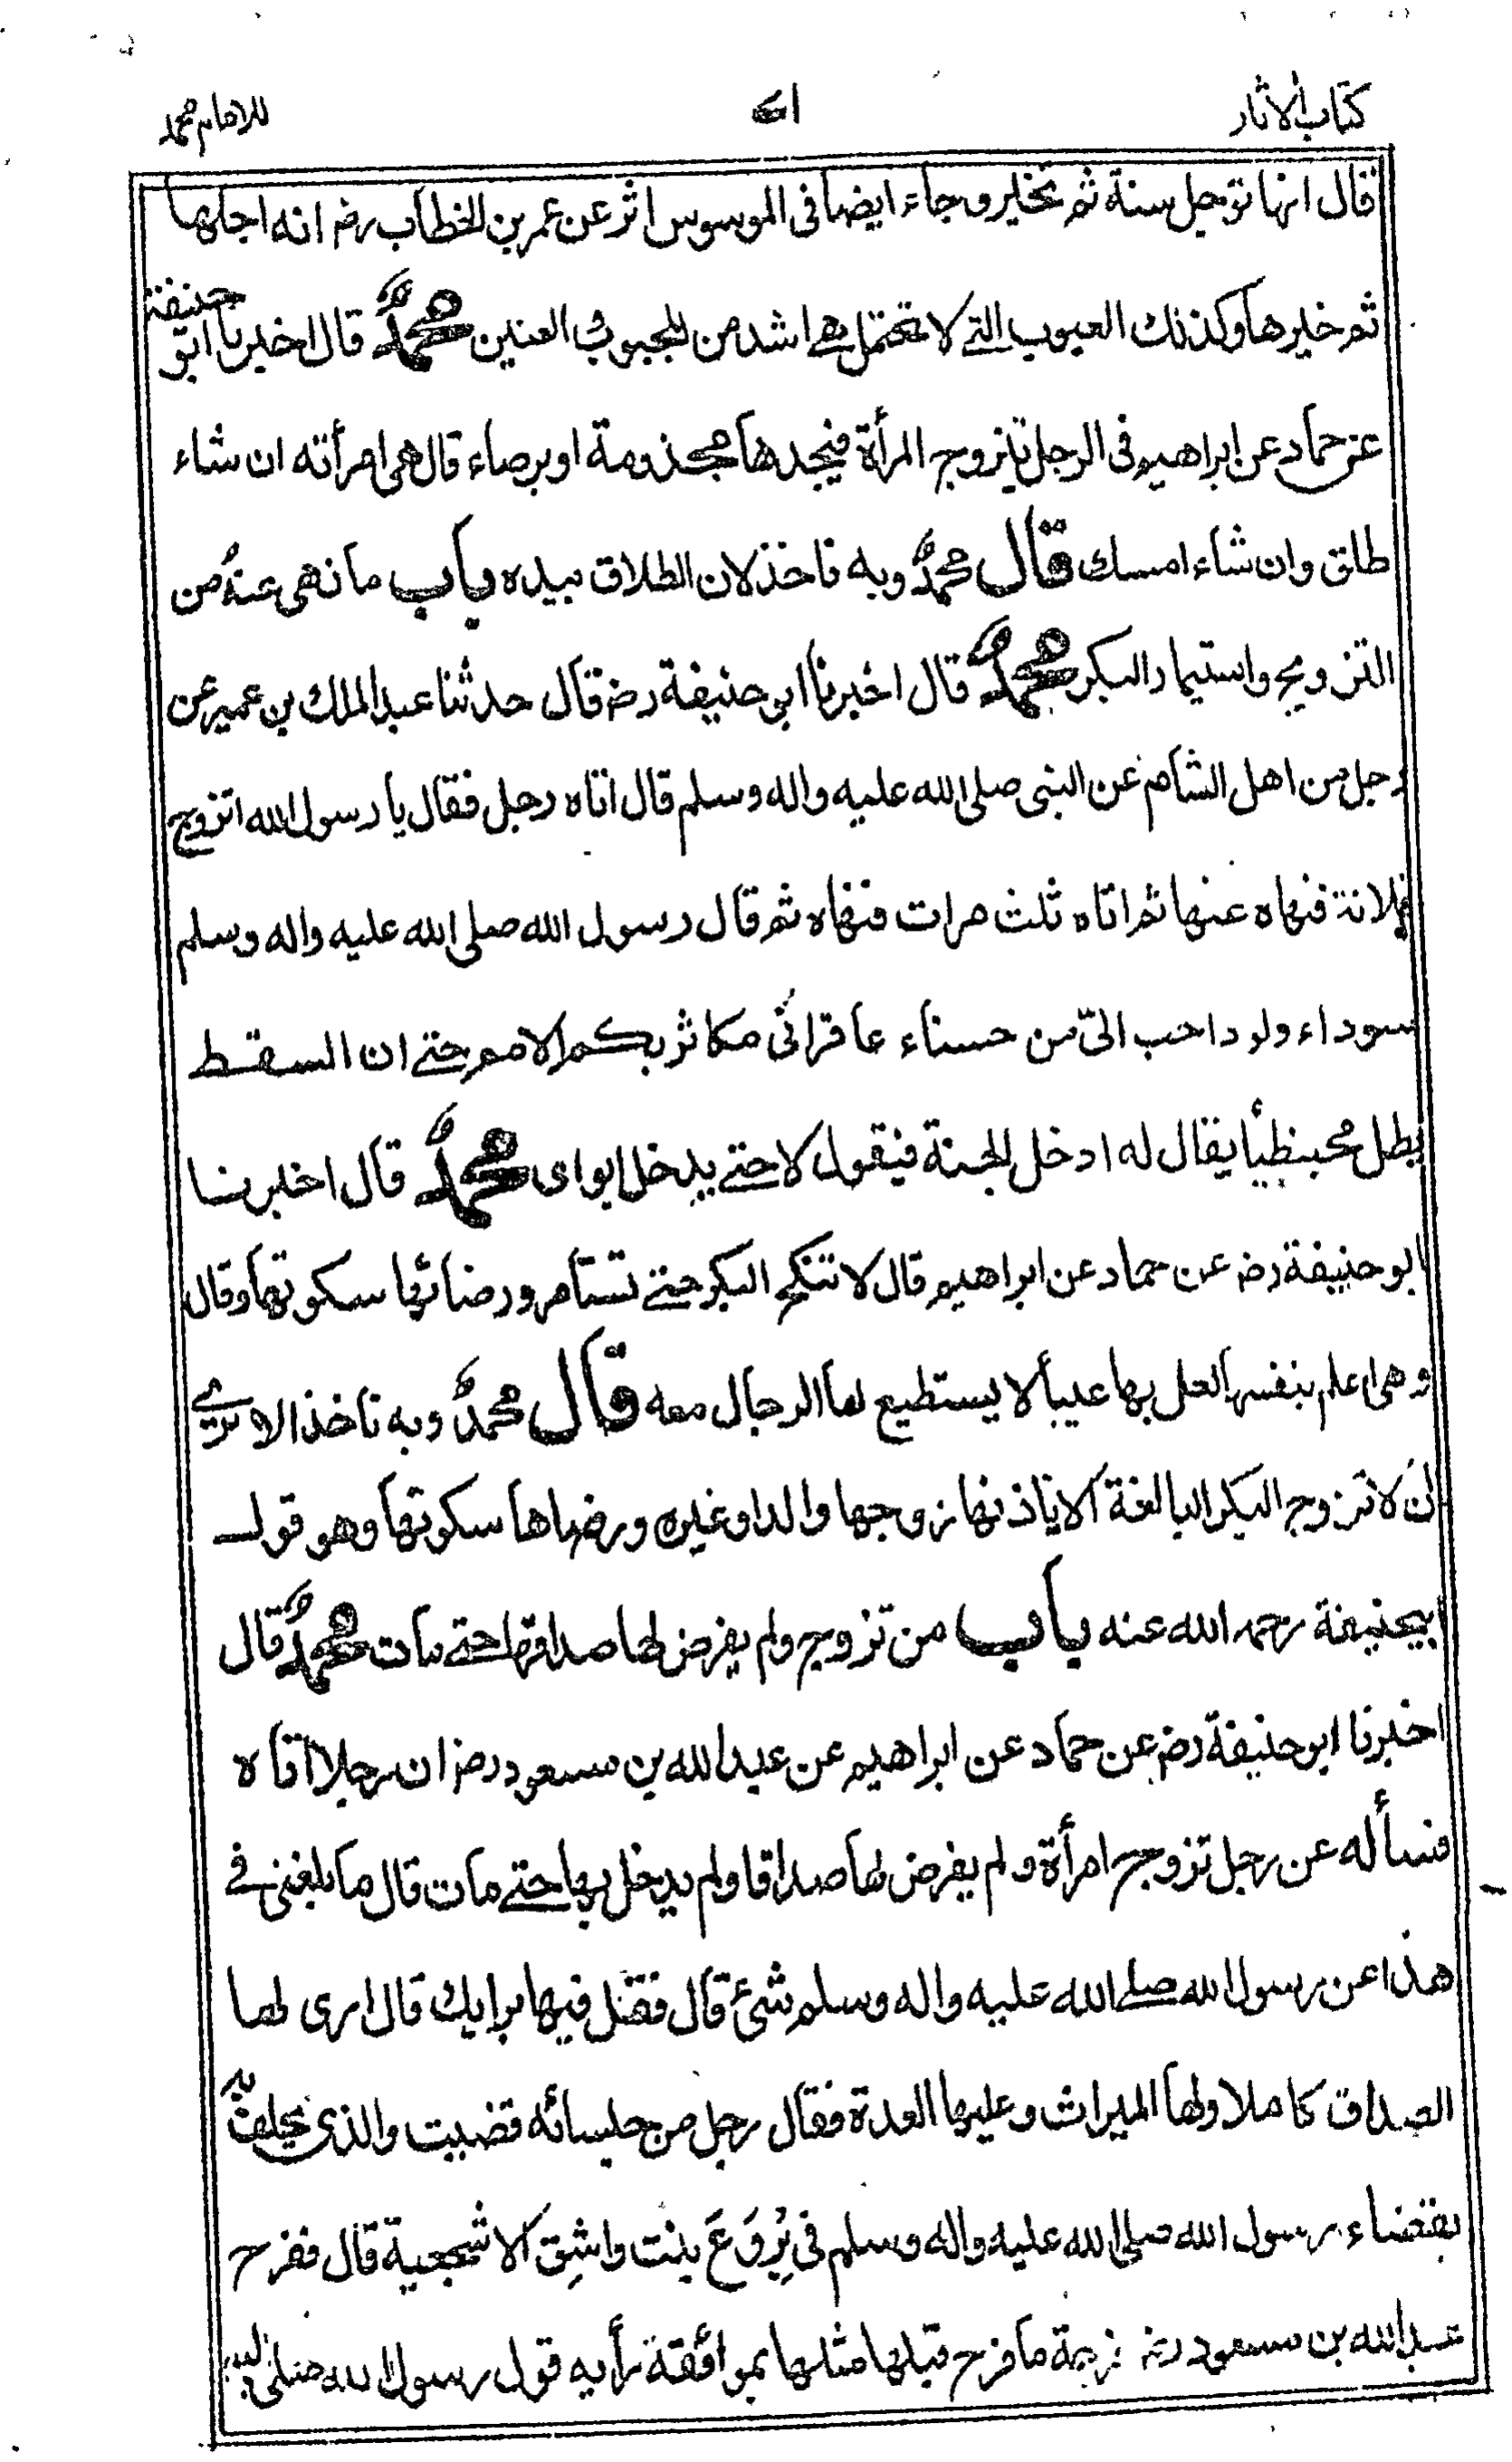 كتاب الاثار
٧١
للامام محمد
قال انها توجل سنة ثم تخير وجاء ايضا فى الموسوس اثر عن عمر بن الخطاب رض انه اجلها
ثم خيرها وكذلك العيوب التے لا تحتمل هے اشد من المجبوب و العنين محمدؒ قال اخبرنا ابو حنيفة
عن حماد عن ابراهيم فى الرجل يتزوج المرأة فيجدها مجذومة او برصاء قال هى امرأته ان شاء
طلق وان شاء امسك قال محمدؒ وبه ناخذ لان الطلاق بيده باب ما نهى عنه من
التزويج واستيمار البكر محمدؒ قال اخبرنا ابى حنيفة رض قال حدثنا عبد الملك بن عمير عن
رجل من اهل الشام عن النبى صلى الله عليه واله وسلم قال اتاه رجل فقال يا رسول الله اتزوج
فلانة فنهاه عنها ثم اتاه ثلث مرات فنهاه ثم قال رسول الله صلى الله عليه واله وسلم
سوداء ولود احب الىّ من حسناء عاقر انى مكاثر بكم الامم حتے ان السقط
يظل محبنظئا يقال له ادخل الجنة فيقول لا حتے يدخل ابواى محمدؒ قال اخبرنا
ابو حنيفة رض عن حماد عن ابراهيم قال لا تنكح البكر حتے تستأمر ورضائها سكوتها وقال
وهى اعلم بنفسها لعل بها عيبا لا يستطيع لها الرجال معه قال محمدؒ وبه ناخذ الا نرے
ان لا تزوج البكر البالغة الا باذنها زوجها والد او غيره ورضاها سكوتها وهو قول
ابيحنيفة رحمه الله عنه باب من تزوج ولم يفرض لها صداقها حتے مات محمدؒ قال
اخبرنا ابو حنيفة رض عن حماد عن ابراهيم عن عبد الله بن مسعود رض ان رجلا اتاه
فسأله عن رجل تزوج امرأة ولم يفرض لها صداقا ولم يدخل بها حتے مات قال ما بلغنى فے
هذا عن رسول الله صلے الله عليه واله وسلم شئ قال فقل فيها برايك قال ارى لها
الصداق كاملا ولها الميراث وعليها العدة فقال رجل من جلسائه قضيت والذى يحلف به
بقضاء رسول الله صلى الله عليه واله وسلم فى بِرْوَعَ بنت واشِق الاشجعية قال ففرح
عبد الله بن مسعود رض فرحة ما فرح قبلها مثلها بموافقة رأيه قول رسول الله صلى